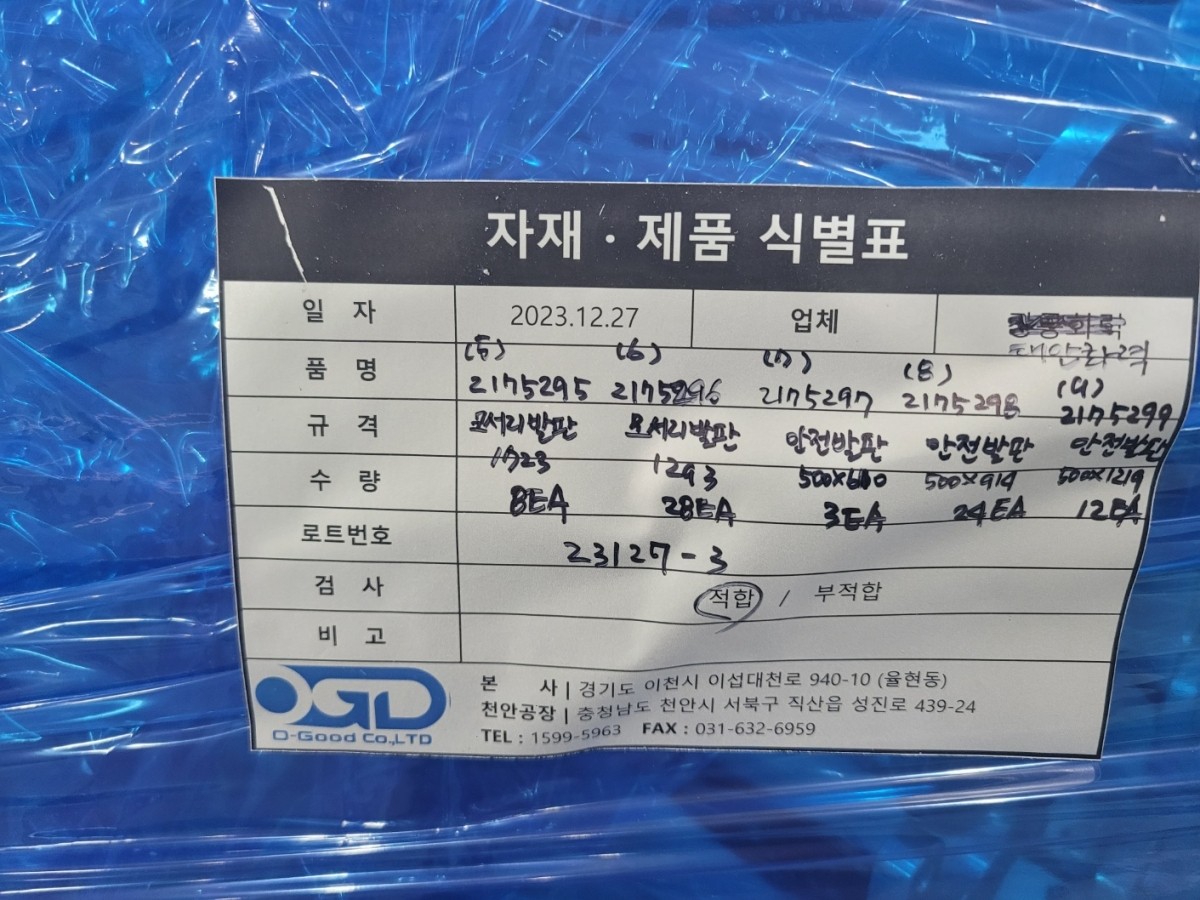 자재 · 제품 식별표
일 자 2023.12.27 업체
태안화력
품 명 (5) (6) (7) (8) (9)
2175295 2175296 2175297 2175298 2175299
규 격 모서리발판 모서리발판 안전발판 안전발판 안전발판
1293 500x610 500x914 500x1219
수 량 8EA 28EA 3EA 24EA 12EA
로트번호 23127-3
검 사 적합 / 부적합
비 고
OGD
O-Good Co.,LTD
본 사 | 경기도 이천시 이섭대천로 940-10 (율현동)
천안공장 | 충청남도 천안시 서북구 직산읍 성진로 439-24
TEL : 1599-5963 FAX : 031-632-6959